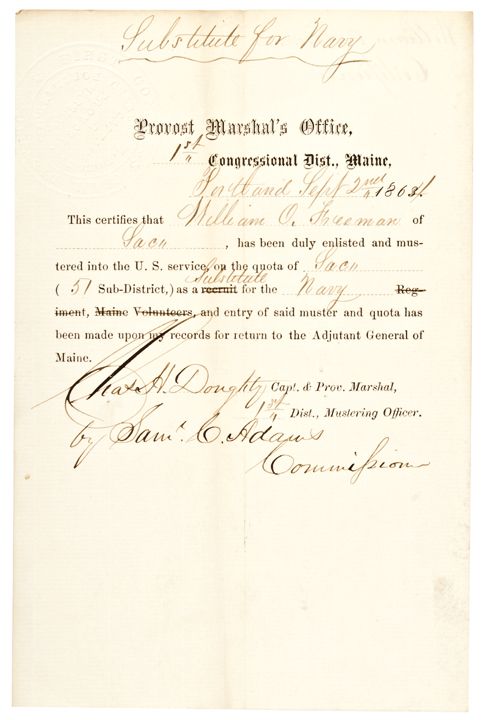 Substitute for Navy
Provost Marshal's Office,
1st Congressional Dist., Maine,
Portland Sept 2nd 1864.
This certifies that William O. Freeman of
Saco , has been duly enlisted and mus-
tered into the U. S. service, on the quota of Saco
Substitute
( 51 Sub-District,) as a recruit for the Navy Reg-
iment, Maine Volunteers, and entry of said muster and quota has
been made upon my records for return to the Adjutant General of
Maine.
Chas H. Doughty Capt. & Prov. Marshal,
1st Dist., Mustering Officer.
by Saml. C. Adams
Commission